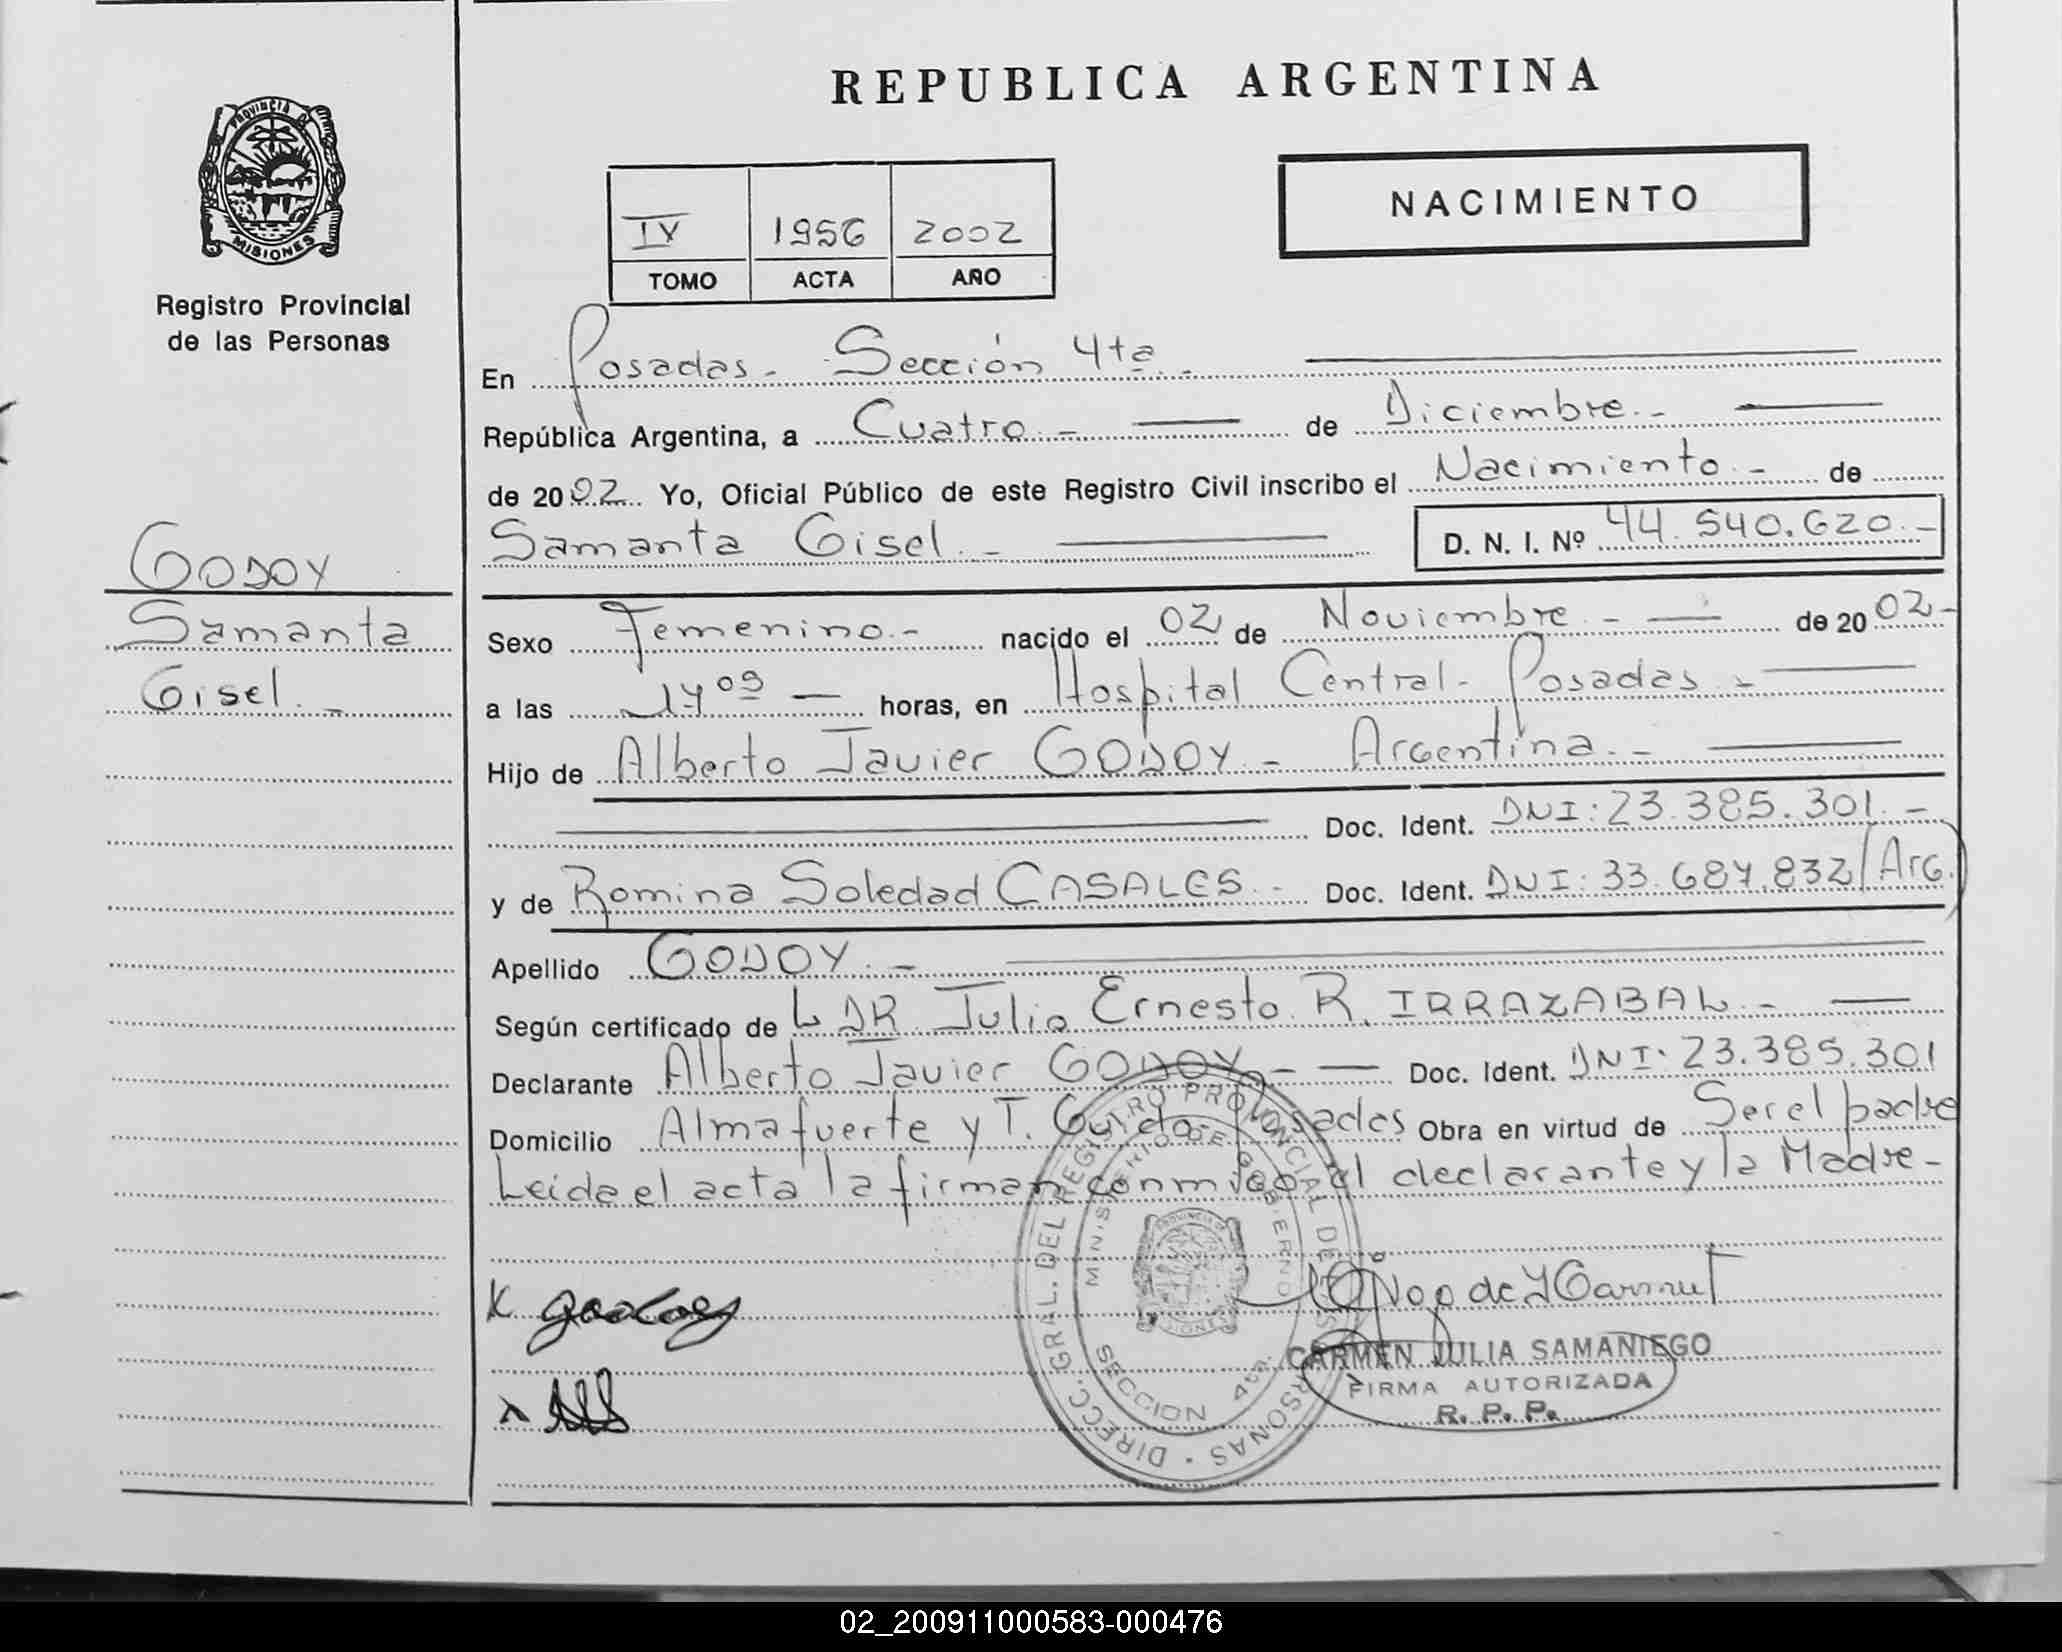 REPUBLICA ARGENTINA
PROVINCIA DE
MISIONES
Registro Provincial
de las Personas
NACIMIENTO
IV 1956 2002
TOMO ACTA AÑO
En Posadas.- Sección 4ta.-
República Argentina, a Cuatro.- de Diciembre.-
de 2002 Yo, Oficial Público de este Registro Civil inscribo el Nacimiento.- de
Samanta Gisel.- D. N. I. Nº 44.540.620.-
GODOY
Samanta
Gisel.-
Sexo Femenino.- nacido el 02 de Noviembre.- de 2002-
a las 17 09 horas, en Hospital Central- Posadas.-
Hijo de Alberto Javier GODOY.- Argentina.-
Doc. Ident. DNI: 23.385.301.-
y de Romina Soledad CASALES.- Doc. Ident. DNI: 33.687.832/Arg.
Apellido GODOY.-
Según certificado de L DR Julio Ernesto R. IRRAZABAL.-
Declarante Alberto Javier GODOY.- Doc. Ident. DNI: 23.385.301
Domicilio Almafuerte y T. Guido- Posadas Obra en virtud de Ser el padre
Leida el acta la firman conmigo el declarante y la Madre-
DIRECC. GRAL. DEL REGISTRO PROVINCIAL DE LAS PERSONAS
MINISTERIO DE GOBIERNO
SECCION 4ta.
CARMEN JULIA SAMANIEGO
FIRMA AUTORIZADA
R. P. P.
02_200911000583-000476